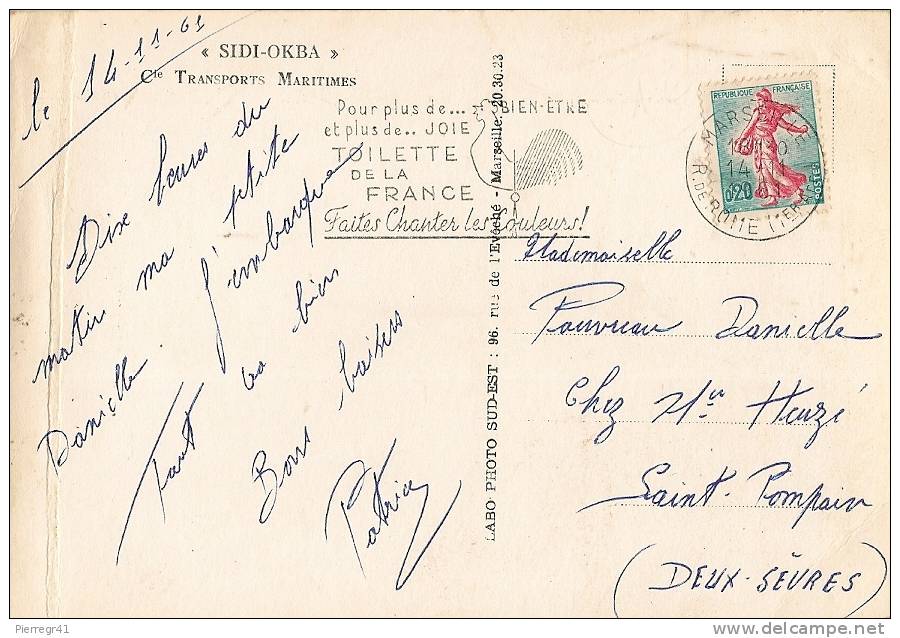 le 14-11-61
« SIDI-OKBA »
Cie TRANSPORTS MARITIMES
Dix heures du
matin ma ptite
Danielle. J'embarque
Tout va bien
Bons baisers
Patrice
Pour plus de... BIEN-ÊTRE
et plus de.. JOIE
TOILETTE
DE LA
FRANCE
Faites Chanter les Couleurs!
LABO PHOTO SUD-EST : 96, rue de l'Evêché - Marseille. 20.30.23
REPUBLIQUE FRANÇAISE
0,20
POSTES
MARSEILLE
14-11
R. DE ROME (
Mademoiselle
Pouvreau Danielle
Chez Mr Heuzé
Saint-Pompain
(DEUX-SÈVRES)
Pierregr41
www.delcampe.net